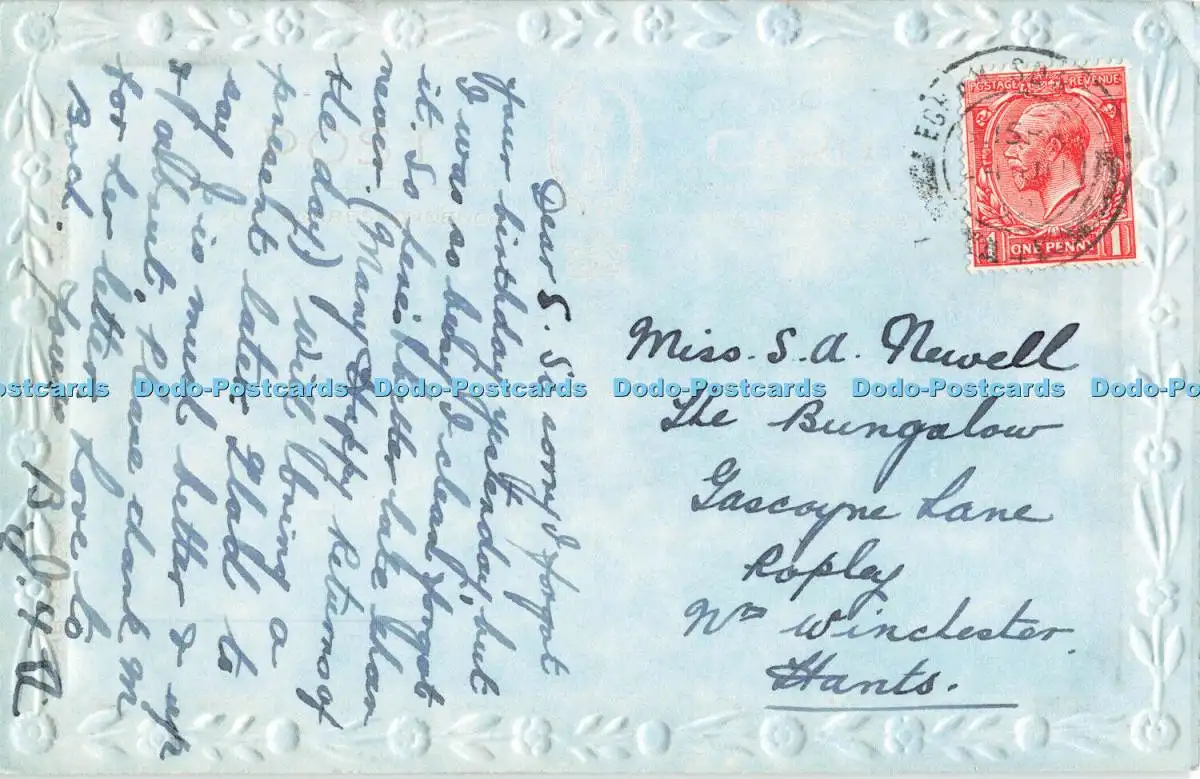 Dear S. So sorry I forgot
your birthday yesterday, but
I was so busy I clean forgot
it. So here's better late than
never. (Many Happy returns of
the day) Will bring a
present later. Glad to
say J. is much better & up
& about. Please thank M
for her letter. Love to
Both. Yours
Miss. S. A. Newell
The Bungalow
Gascoyne Lane
Ropley
Nr Winchester.
Hants.
POSTAGE REVENUE
1 ONE PENNY 1
Dodo-Postcards Dodo-Postcards Dodo-Postcards Dodo-Postcards Dodo-Postcards Dodo-Postcards